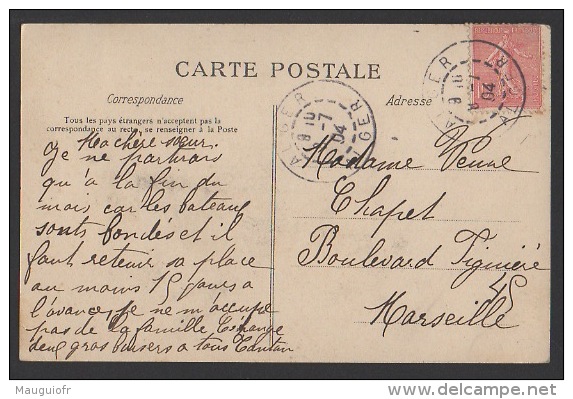 CARTE POSTALE
Correspondance
Tous les pays étrangers n'acceptent pas la
correspondance au recto, se renseigner à la Poste
Ma chère sœur.
Je ne partirais
qu'à la fin du
mois car les bateaux
sonts bondes et il
faut retenir sa place
au moins 15 jours a
l'avance, je ne m'accupe
pas de la famille
deux gros baisers a tous Tantan
Adresse
Madame Penne
Chapet
Boulevard Tiguière
45
Marseille
ALGER
ALGER
Mauguiofr
delcampe.net